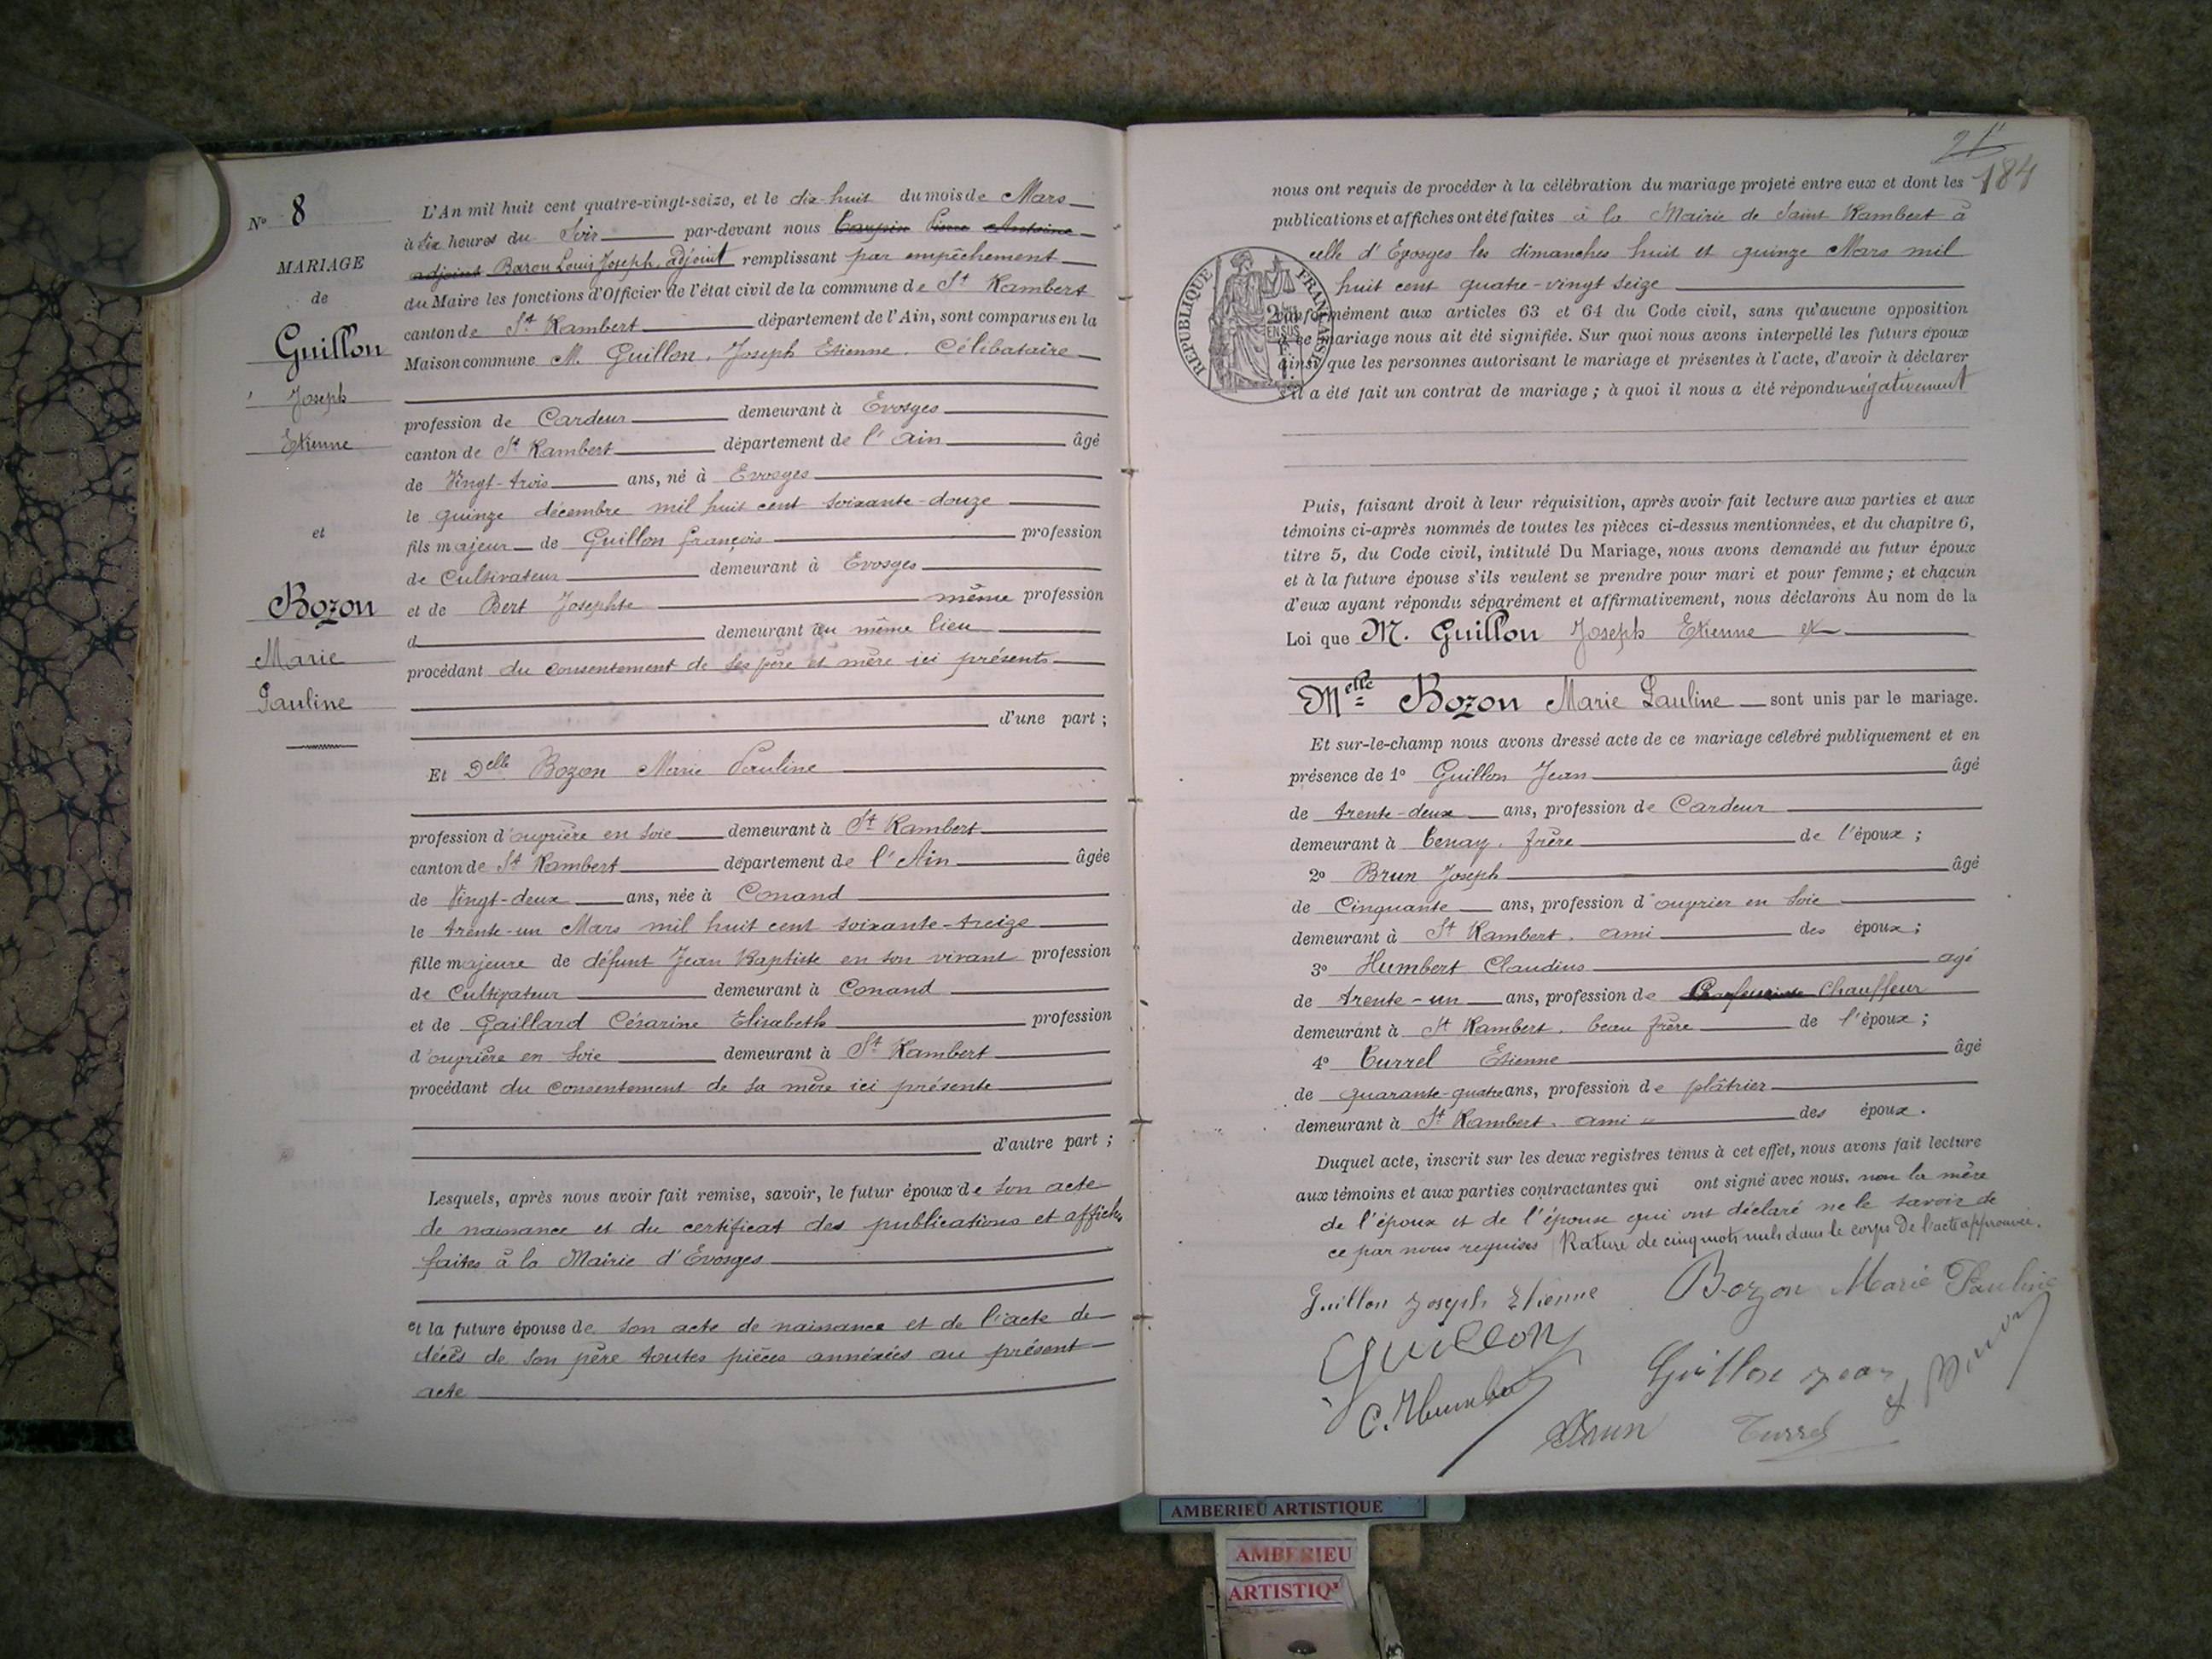 N° 8
MARIAGE
de
Guillon
Joseph
Etienne
et
Bozon
Marie
Pauline
L'An mil huit cent quatre-vingt-seize, et le dix-huit du mois de Mars
à six heures du Soir par-devant nous Pierre Antoine
adjoint Baron Louis Joseph, adjoint remplissant par empêchement
du Maire les fonctions d'Officier de l'état civil de la commune de St Rambert
canton de St Rambert département de l'Ain, sont comparus en la
Maison commune M. Guillon, Joseph Etienne, Célibataire
profession de Cardeur demeurant à Evosges
canton de St Rambert département de l'ain âgé
de Vingt-trois ans, né à Evosges
le quinze décembre mil huit cent soixante-douze
fils majeur de Guillon françois profession
de Cultivateur demeurant à Evosges
et de Bert Josephte même profession
d demeurant au même lieu
procédant du consentement de ses père et mère ici présents
d'une part ;
Et Delle Bozon Marie Pauline
profession d'ouvrière en soie demeurant à St Rambert
canton de St Rambert département de l'Ain âgée
de Vingt-deux ans, née à Conand
le trente-un Mars mil huit cent soixante-treize
fille majeure de défunt Jean Baptiste en son vivant profession
de Cultivateur demeurant à Conand
et de Gaillard Césarine Elisabeth profession
d'ouvrière en soie demeurant à St Rambert
procédant du consentement de sa mère ici présente
d'autre part ;
Lesquels, après nous avoir fait remise, savoir, le futur époux de son acte
de naissance et du certificat des publications et affiches
faites à la Mairie d'Evosges
et la future épouse de son acte de naissance et de l'acte de
décès de son père toutes pièces annéxées au présent
acte
21
184
nous ont requis de procéder à la célébration du mariage projeté entre eux et dont les
publications et affiches ont été faites à la Mairie de Saint Rambert à
celle d'Evosges les dimanches huit et quinze Mars mil
huit cent quatre-vingt seize
REPUBLIQUE FRANÇAISE
conformément aux articles 63 et 64 du Code civil, sans qu'aucune opposition
à ce mariage nous ait été signifiée. Sur quoi nous avons interpellé les futurs époux
ainsi que les personnes autorisant le mariage et présentes à l'acte, d'avoir à déclarer
s'il a été fait un contrat de mariage ; à quoi il nous a été répondu négativement
Puis, faisant droit à leur réquisition, après avoir fait lecture aux parties et aux
témoins ci-après nommés de toutes les pièces ci-dessus mentionnées, et du chapitre 6,
titre 5, du Code civil, intitulé Du Mariage, nous avons demandé au futur époux
et à la future épouse s'ils veulent se prendre pour mari et pour femme ; et chacun
d'eux ayant répondu séparément et affirmativement, nous déclarons Au nom de la
Loi que M. Guillon Joseph Etienne et
Melle Bozon Marie Pauline sont unis par le mariage.
Et sur-le-champ nous avons dressé acte de ce mariage célébré publiquement et en
présence de 1° Guillon Jean âgé
de trente-deux ans, profession de Cardeur
demeurant à Tenay, frère de l'époux ;
2° Brun Joseph âgé
de Cinquante ans, profession d'ouvrier en soie
demeurant à St Rambert, ami des époux ;
3° Humbert Claudius agé
de trente-un ans, profession de Chauffeur
demeurant à St Rambert, beau frère de l'époux ;
4° Turrel Etienne âgé
de quarante-quatre ans, profession de plâtrier
demeurant à St Rambert, ami des époux.
Duquel acte, inscrit sur les deux registres tenus à cet effet, nous avons fait lecture
aux témoins et aux parties contractantes qui ont signé avec nous. non la mère
de l'époux et de l'épouse qui ont déclaré ne le savoir de
ce par nous requises Rature de cinq mots nuls dans le corps de l'acte approuvée.
Guillon Joseph Etienne Bozon Marie Pauline
Guillon
Guillon Jean
C. Humbert
Brun Turrel
AMBERIEU ARTISTIQUE
AMBERIEU
ARTISTIQ